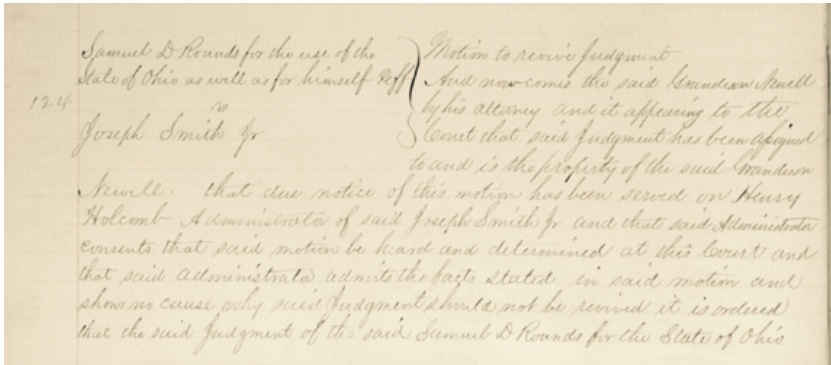 Samuel D Rounds for the use of the
State of Ohio as well as for himself Peff
12.4
vs
Joseph Smith Jr
Motion to revive Judgment
And now comes the said Grandison Newell
by his attaney and it appearing to the
Court that said Judgment has been assigned
to and is the property of the said Grandison
Newell. that due notice of this motion has been served on Henry
Holcomb Administrator of said Joseph Smith Jr and that said Administrator
consents that said motion be heard and determined at this Court and
that said administrator admits the facts stated in said motion and
shows no cause why said Judgment should not be revived it is ordered
that the said Judgment of the said Samuel D Rounds for the State of Ohio